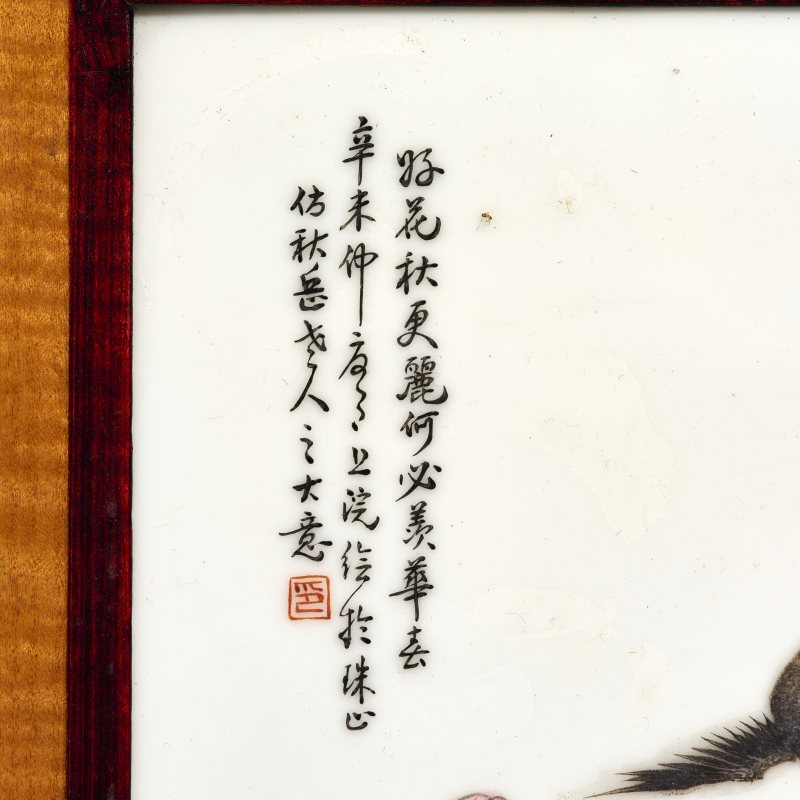 好花秋更麗何必羡華春
辛未仲夏月上浣绘於珠山
仿秋岳老人之大意
印